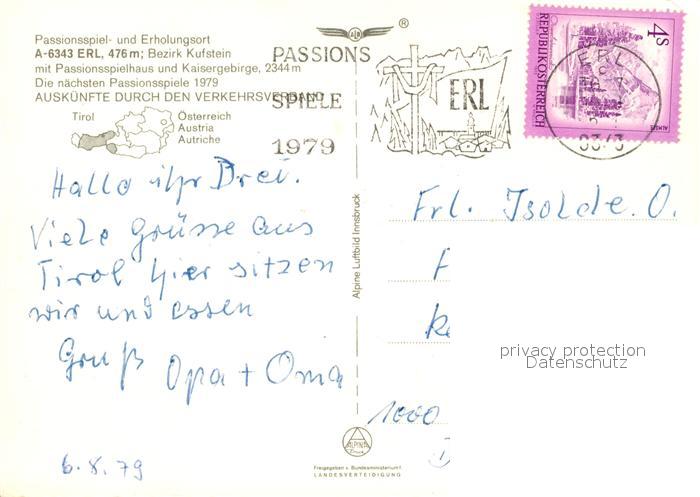 Passionsspiel- und Erholungsort
A-6343 ERL, 476 m; Bezirk Kufstein
mit Passionsspielhaus und Kaisergebirge, 2344 m
Die nächsten Passionsspiele 1979
AUSKÜNFTE DURCH DEN VERKEHRSVERBAND
Tirol
Österreich
Austria
Autriche
®
PASSIONS
SPIELE
1979
ERL
4S
REPUBLIK ÖSTERREICH
ERL
Hallo ihr Drei.
Viele Grüsse aus
Tirol hier sitzen
wir und essen
Gruß Opa + Oma
6.8.79
Alpine Luftbild Innsbruck
Frl. Isolde. O.
F
K
1000
privacy protection
Datenschutz
ALPINE
Freigegeben v. Bundesministerium f.
LANDESVERTEIDIGUNG